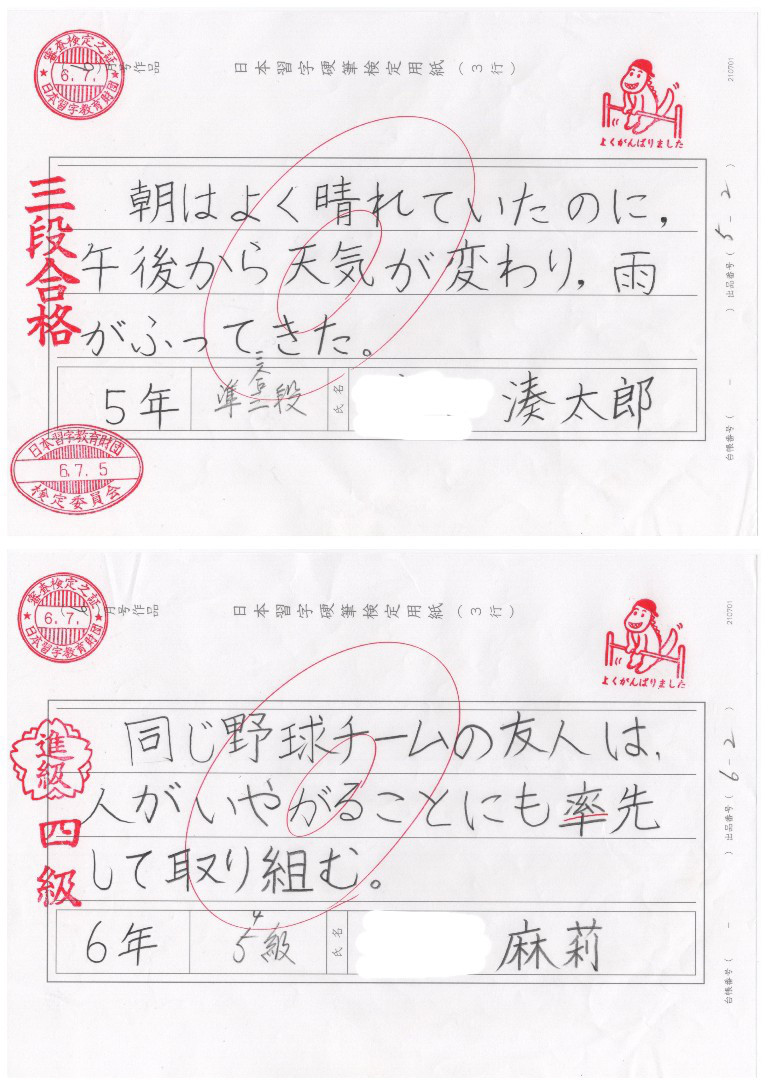 審査検定之証
6.7.
日本習字教育財団
6月号作品
日本習字硬筆検定用紙(3行)
よくがんばりました
210701
三段合格
朝はよく晴れていたのに,
午後から天気が変わり,雨
がふってきた。
5年
準三段
氏名
湊太郎
出品番号( 5-2 )
台帳番号( - )
日本習字教育財団
6.7.5
検定委員会
審査検定之証
6.7.
日本習字教育財団
6月号作品
日本習字硬筆検定用紙(3行)
よくがんばりました
210701
進級
四級
同じ野球チームの友人は,
人がいやがることにも率先
して取り組む。
6年
4
5級
氏名
麻莉
出品番号( 6-2 )
台帳番号( - )